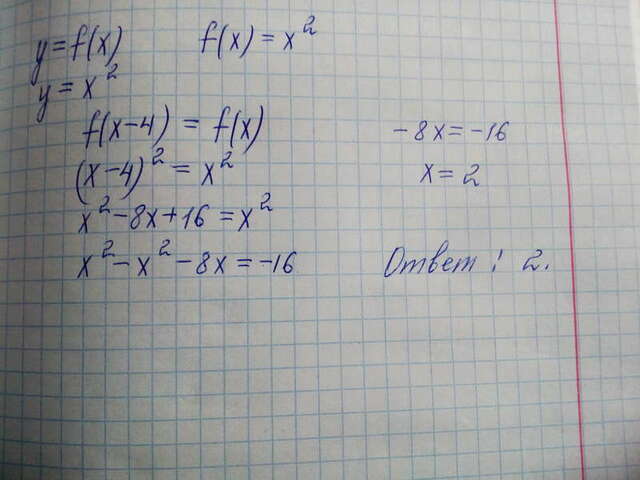 y = f(x)    f(x) = x²
y = x²
f(x-4) = f(x)
(x-4)² = x²
x² - 8x + 16 = x²
x² - x² - 8x = -16
-8x = -16
x = 2
Ответ: 2.